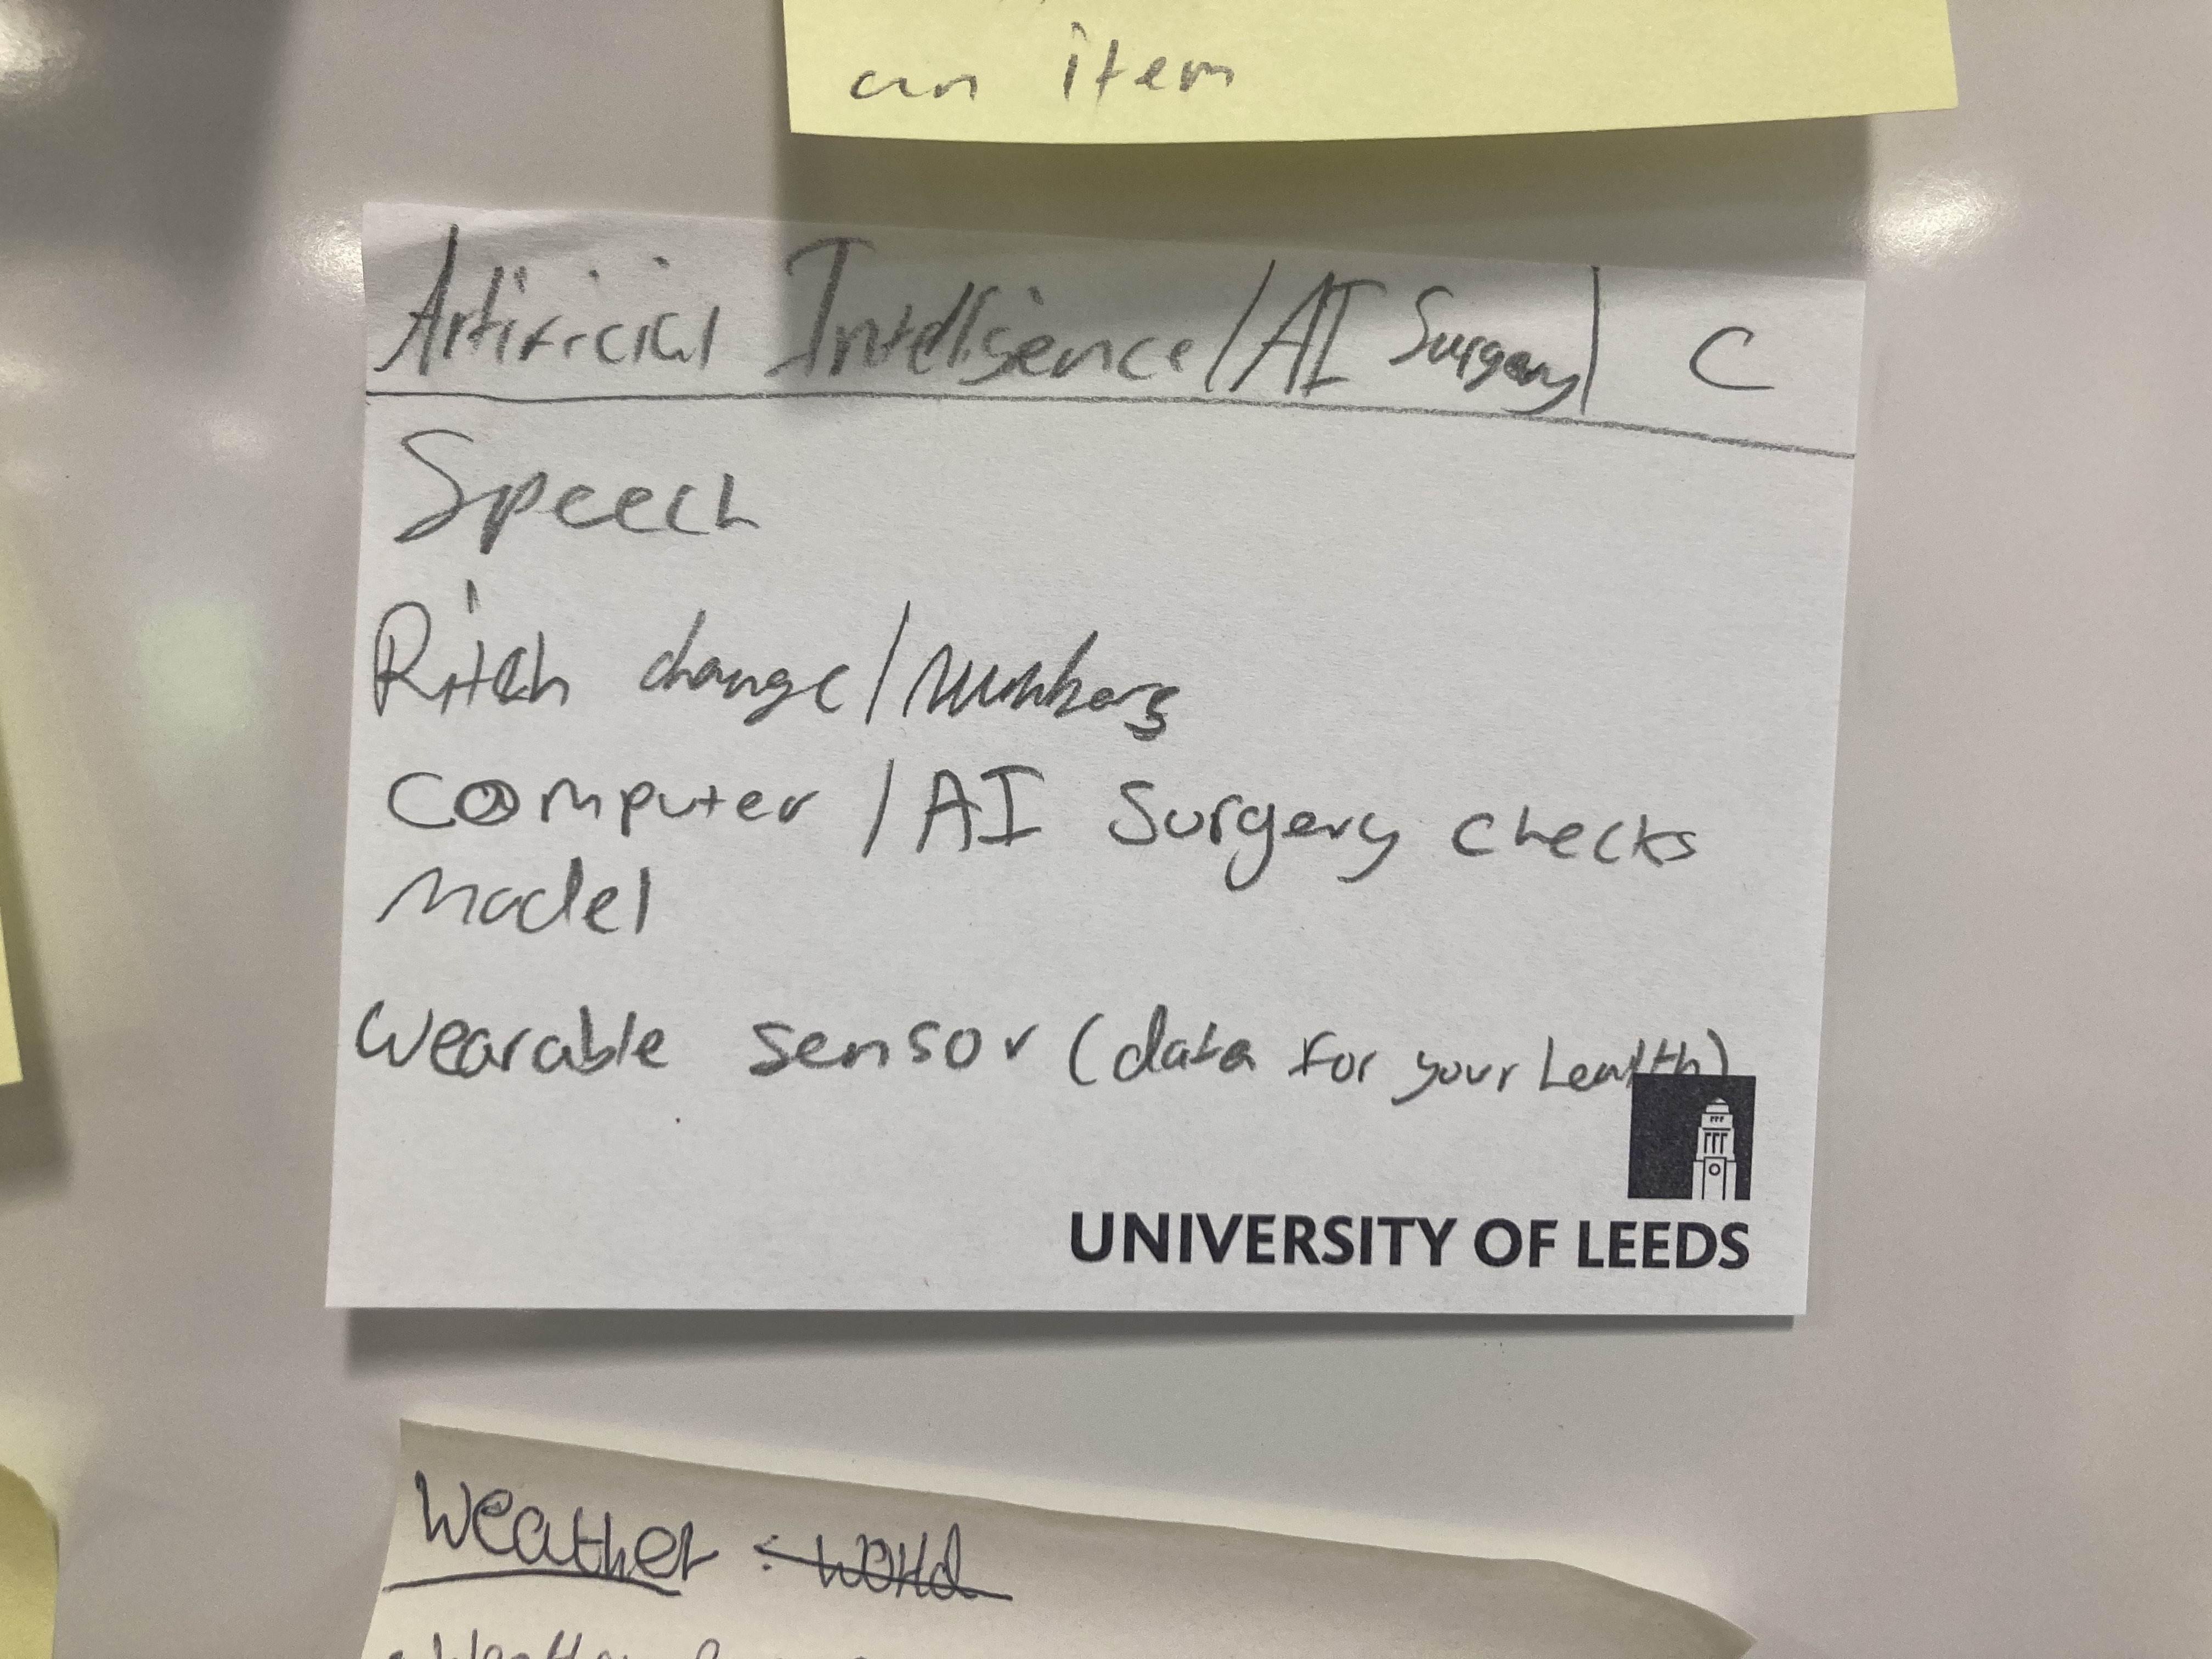 an item
Artificial Intelligence/AI Surgery| C
Speech
Pitch change/numbers
Computer/AI Surgery checks
Model
Wearable sensor (data for your health)
UNIVERSITY OF LEEDS
Weather : World